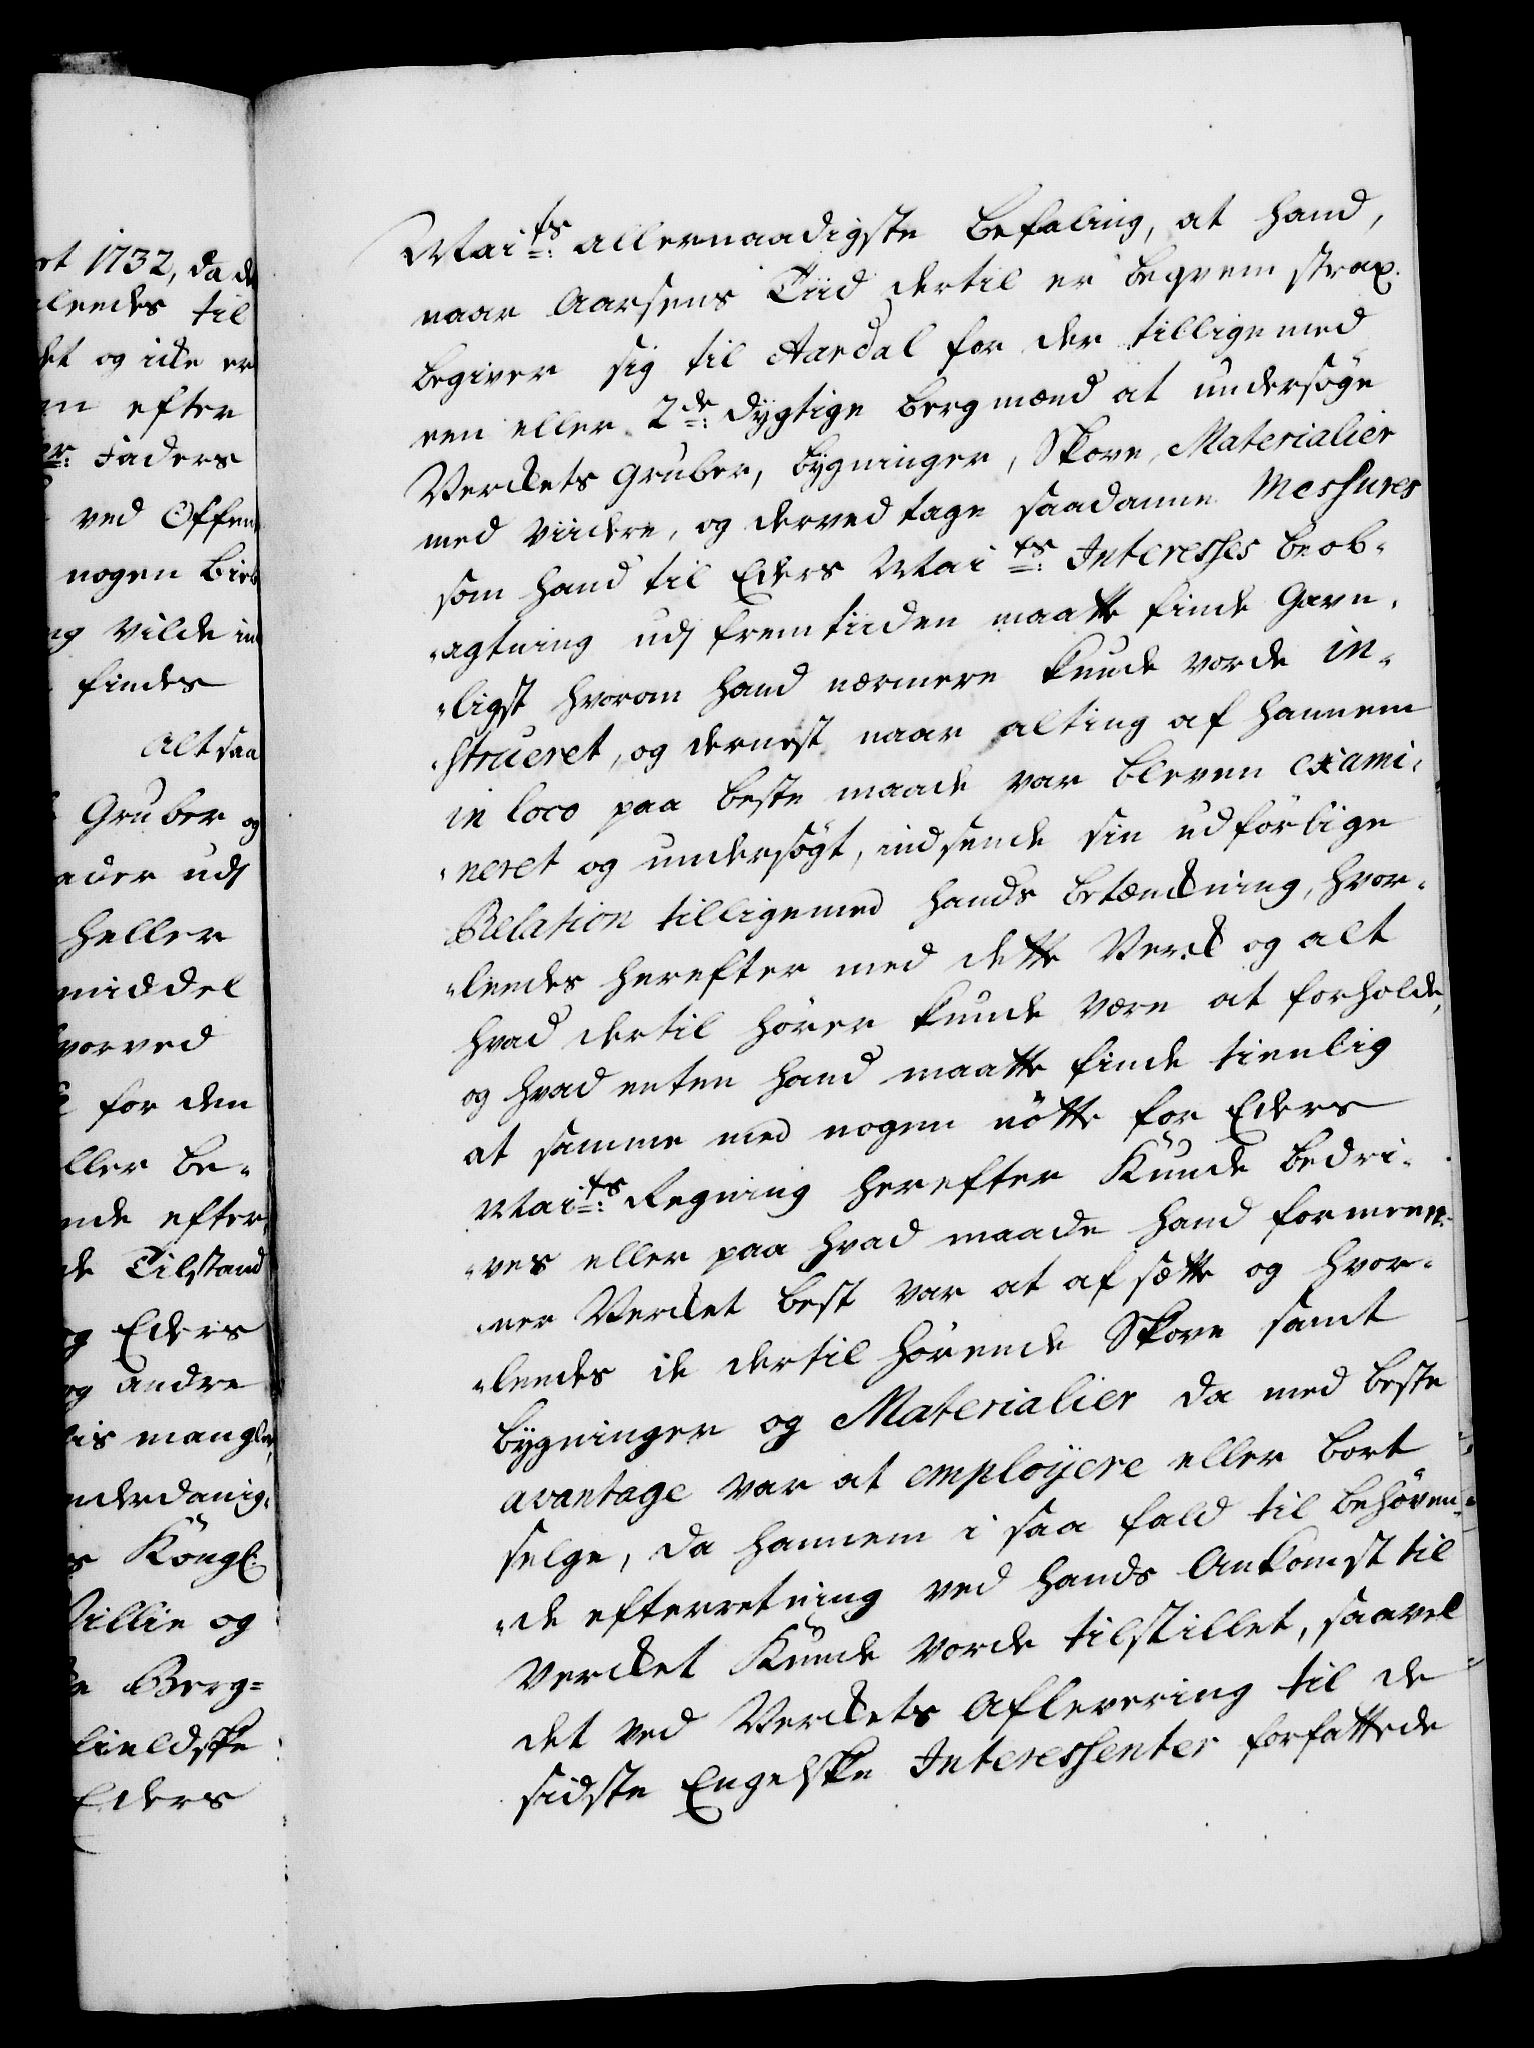 rt 1732, da de
ledes til
det og icke er
en efter
er: Faders
ved Offen
nogen birk
ng vilde in
findes
Alt saa
Gruber og
ader udj
heller
middel
hvorved
for den
ller be-
nde efter
de Tilstand
og Eders
og andre
lis mangler,
nderdanig-
s Kongl:
Villie og
e Berg=
fieldske
Eders
Mai:ts allernaadigste befaling, at hand,
naar Aarsens Tiid dertil er beqvem strax
begiver sig til Aardal for der tilligemed
een eller 2de: dygtige bergmænd at undersøge
Verckets Gruber, bygninger, Skove, Materialier
med viidere, og derved tage saadanne Messures
som hand til Eders Mai:ts Interesses beob-
-agtning udj fremtiiden maatte finde Gavn-
-ligst hvorom hand nærmere kunde vorde in-
-strueret, og dernest naar alting af hannem
in loco paa beste maade var bleven exami-
-neret og undersøgt, indsende sin udførlige
Relation tilligemed hands betænckning, hvor-
-leedes herefter med dette Verck og alt
hvad dertil hører kunde være at forholde,
og hvad enten hand maatte finde tienlig
at samme med nogen nötte for Eders
Mai:ts Regning herefter kunde bedri-
-ves eller paa hvad maade hand formeen-
-ner Verket best var at afsætte og hvor-
-leedes de dertil hørende Skove samt
bygninger og Materialier da med beste
avantage var at employere eller bort
selge, da hannem i saa fald til behøven-
-de efterretning ved hands Ankomst til
Vercket kunde vorde tilstillet, saavel
det ved Verckets Aflevering til de
sidste Engelske Interessenter forfattede